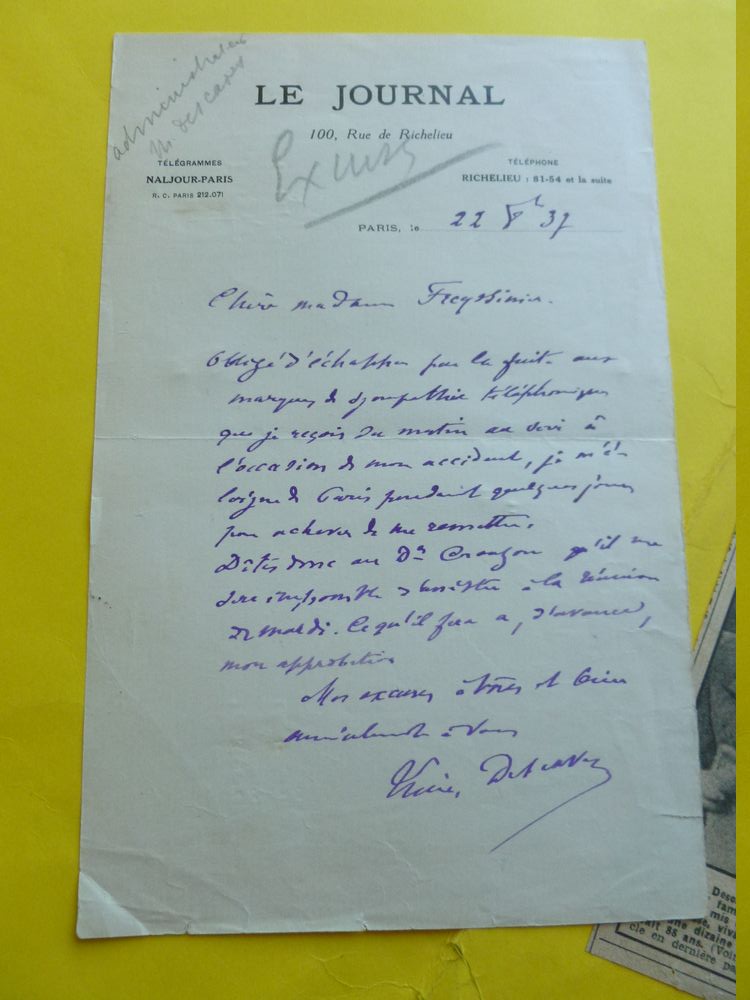 administrateur
M. Descaves
LE JOURNAL
100, Rue de Richelieu
TÉLÉGRAMMES
NALJOUR-PARIS
R. C. PARIS 212.071
TÉLÉPHONE
RICHELIEU : 81-54 et la suite
PARIS, le 22 37
Chère madame Freyssinier.
Obligé d'échapper par la fuite aux
marques de sympathie téléphoniques
que je reçois du matin au soir à
l'occasion de mon accident, je m'é-
loigne de Paris pendant quelques jours
pour achever de me remettre.
Dites donc au Dr Crouzon qu'il me
sera impossible d'assister à la réunion
de mardi. Ce qu'il fera a, d'avance,
mon approbation
Mes excuses à tous et bien
amicalement à vous
Lucien Descaves
Desc
fam
mis
vive
une dizaine
ait 88 ans. (Voir
cle en dernière pa